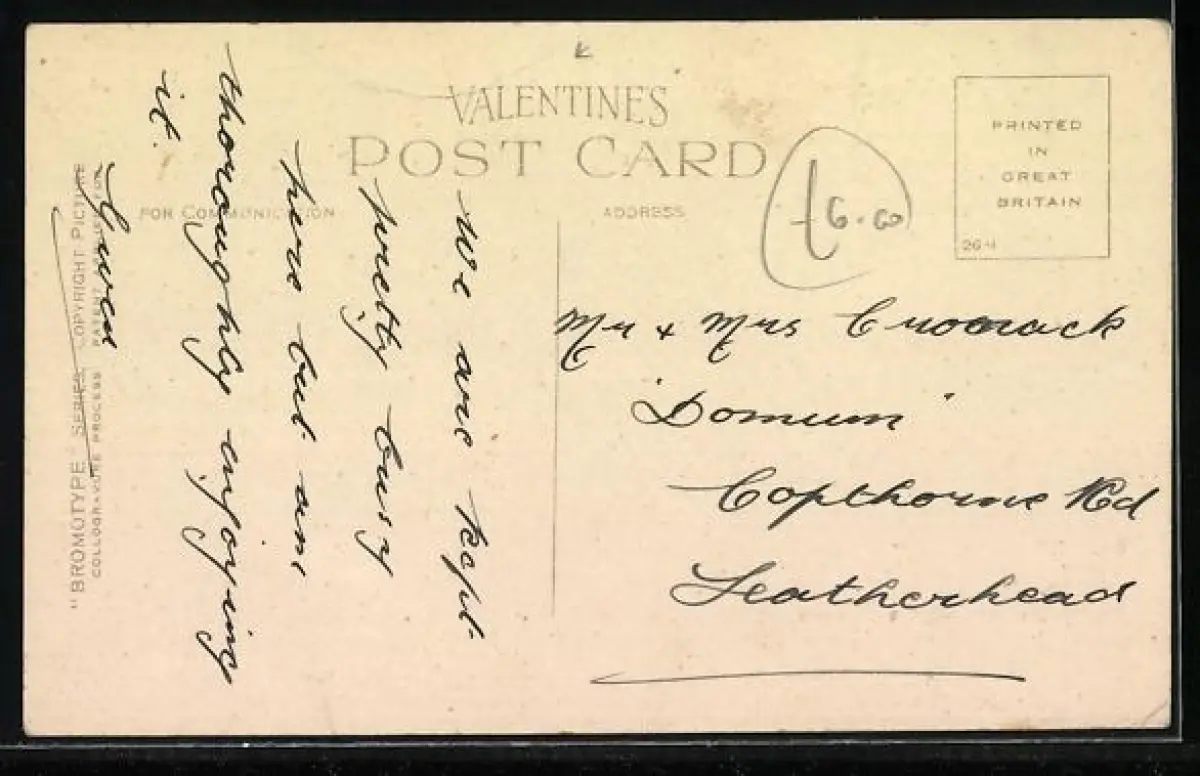 VALENTINE'S
POST CARD
FOR COMMUNICATION
ADDRESS
PRINTED
IN
GREAT
BRITAIN
264
£6.00
We are kept
pretty busy
here but am
thoroughly enjoying
it.
Gwen
Mr + Mrs
"Domum"
Copthorne Rd
Leatherhead
"BROMOTYPE" SERIES COPYRIGHT PICTURE
COLLOGRAVURE PROCESS PATENT APPLIED FOR